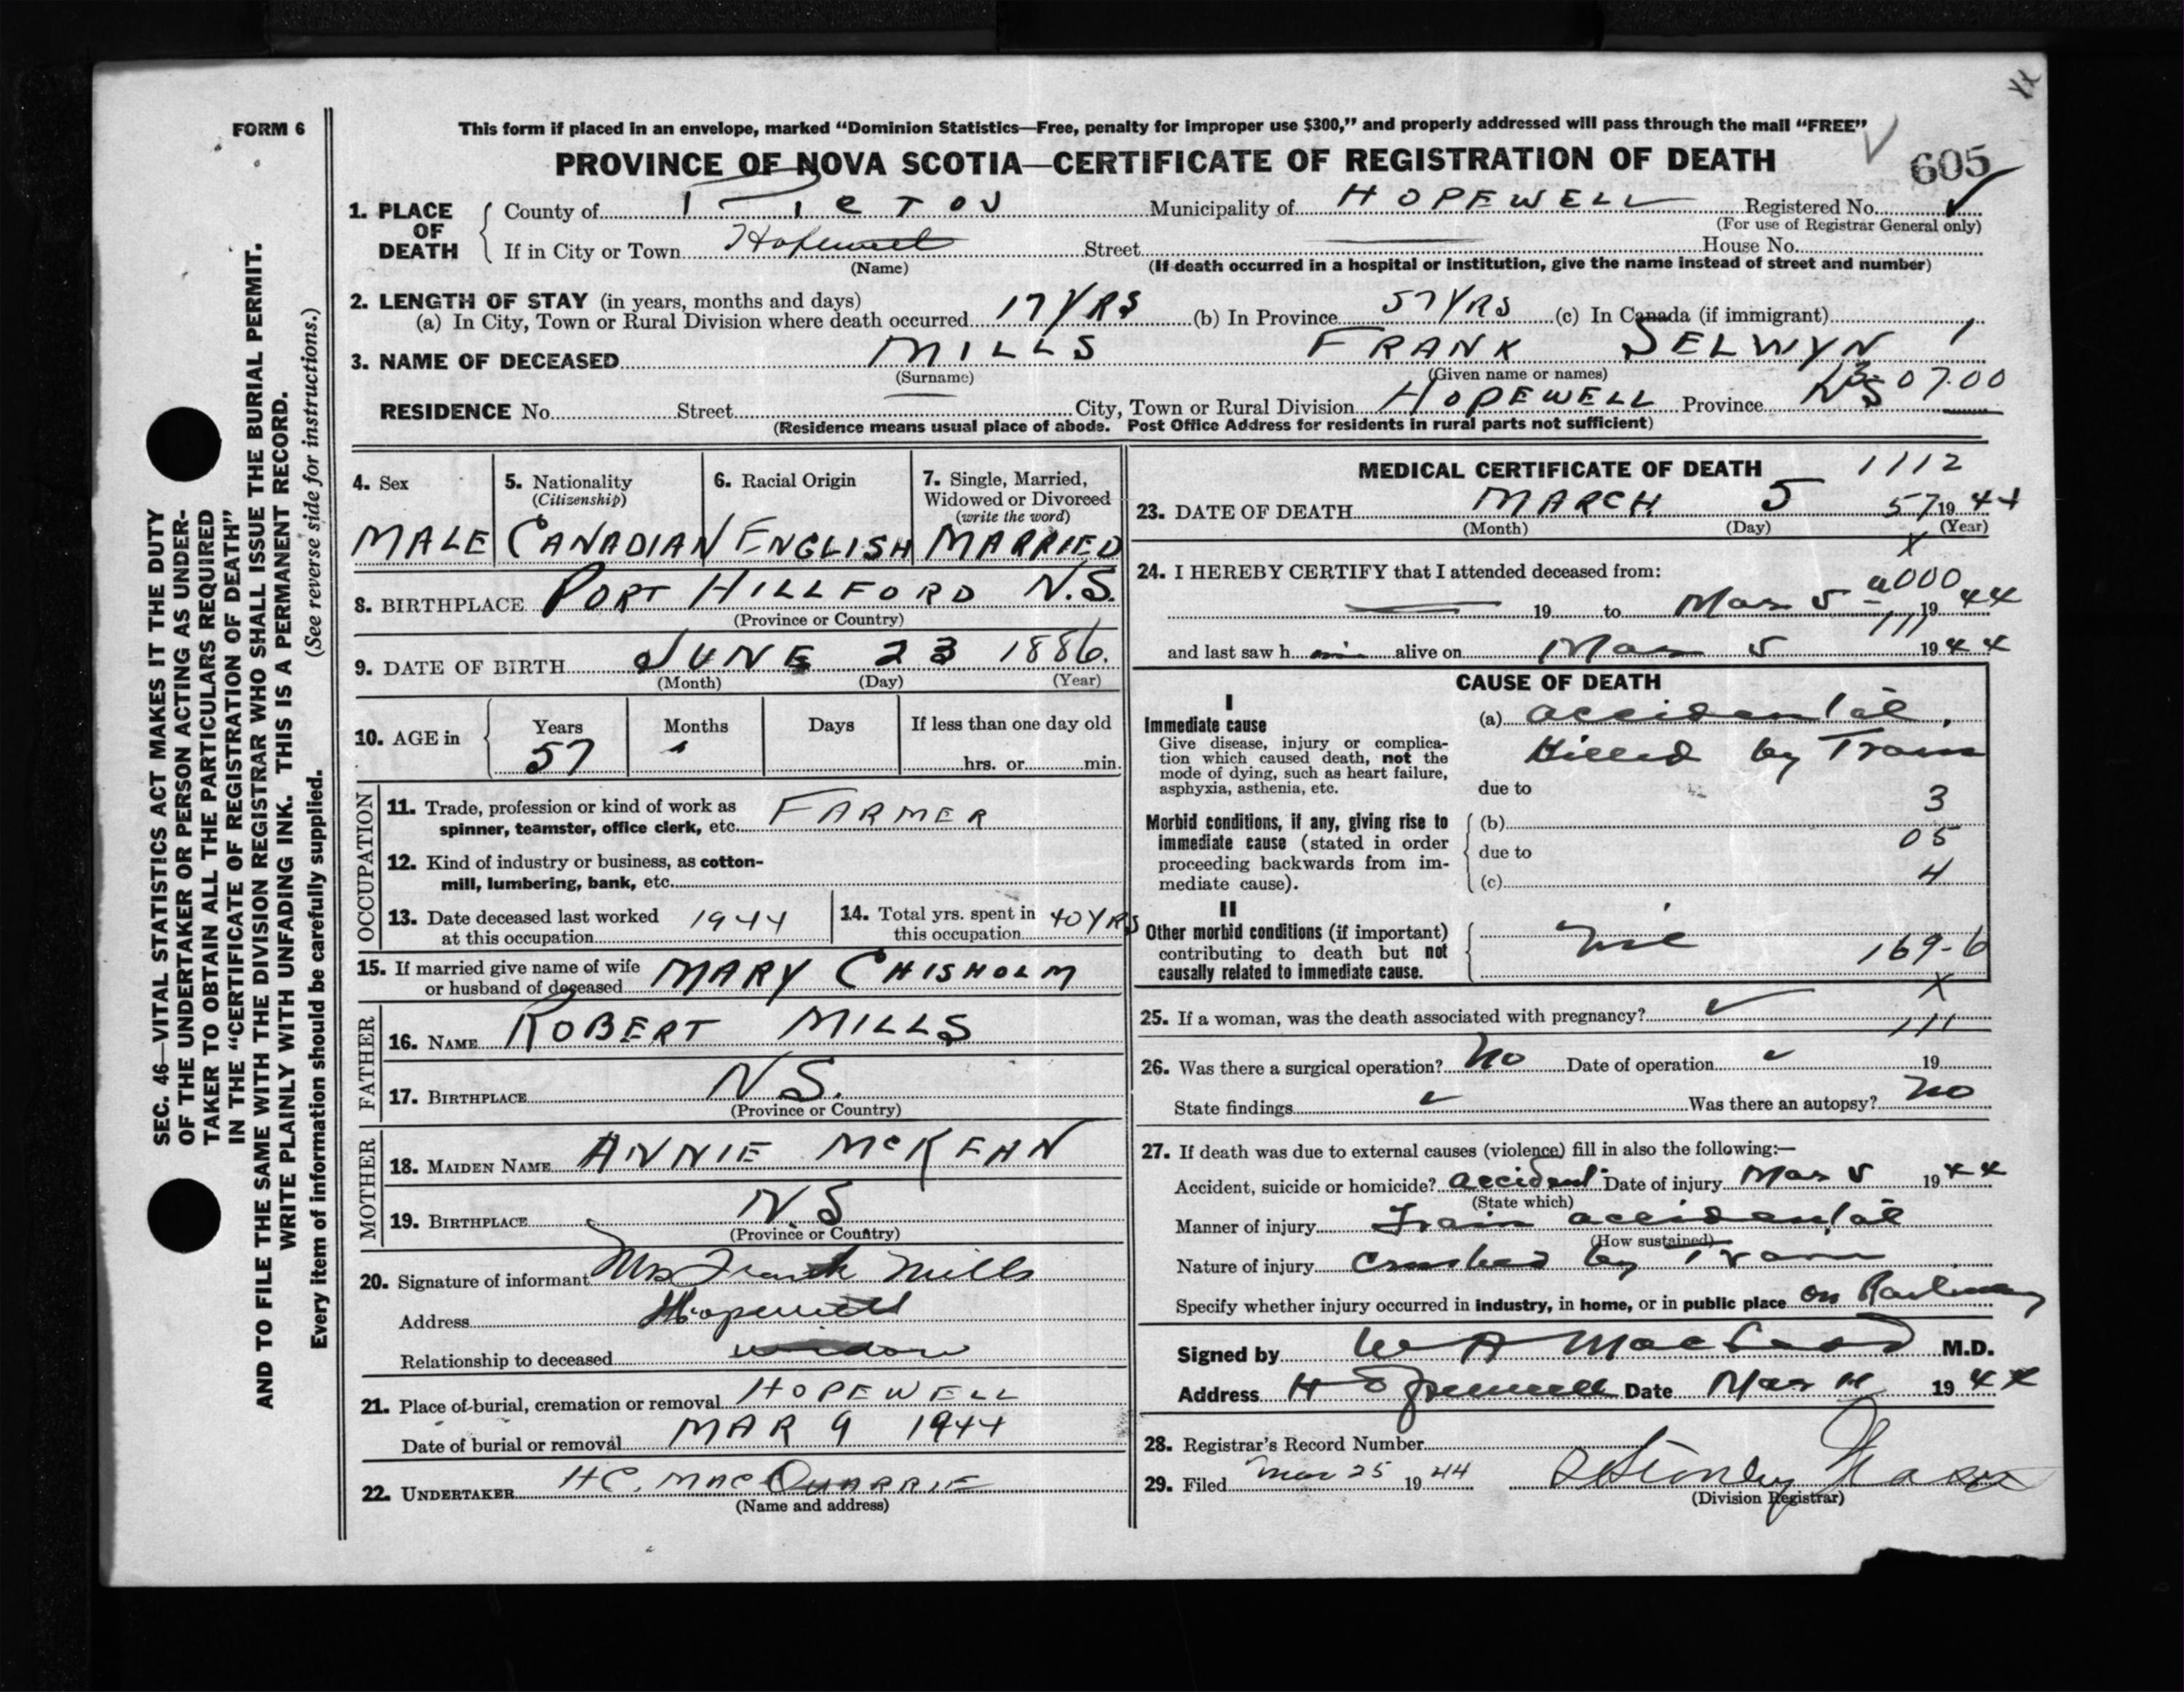 FORM 6
This form if placed in an envelope, marked “Dominion Statistics—Free, penalty for improper use $300,” and properly addressed will pass through the mail “FREE”
PROVINCE OF NOVA SCOTIA—CERTIFICATE OF REGISTRATION OF DEATH
605
1. PLACE OF DEATH
County of PICTOU Municipality of HOPEWELL Registered No.
(For use of Registrar General only)
If in City or Town Hopewell Street House No.
(Name) (If death occurred in a hospital or institution, give the name instead of street and number)
2. LENGTH OF STAY (in years, months and days)
(a) In City, Town or Rural Division where death occurred 17 YRS (b) In Province 57 YRS (c) In Canada (if immigrant)
3. NAME OF DECEASED MILLS FRANK SELWYN
(Surname) (Given name or names)
07.00
RESIDENCE No. Street City, Town or Rural Division HOPEWELL Province NS
(Residence means usual place of abode. Post Office Address for residents in rural parts not sufficient)
4. Sex
MALE
5. Nationality
(Citizenship)
CANADIAN
6. Racial Origin
ENGLISH
7. Single, Married,
Widowed or Divorced
(write the word)
MARRIED
8. BIRTHPLACE PORT HILLFORD N.S.
(Province or Country)
9. DATE OF BIRTH JUNE 23 1886.
(Month) (Day) (Year)
10. AGE in
Years Months Days If less than one day old
57 hrs. or min.
OCCUPATION
11. Trade, profession or kind of work as
spinner, teamster, office clerk, etc. FARMER
12. Kind of industry or business, as cotton-
mill, lumbering, bank, etc.
13. Date deceased last worked
at this occupation 1944
14. Total yrs. spent in
this occupation 40 YRS
15. If married give name of wife
or husband of deceased MARY CHISHOLM
FATHER
16. NAME ROBERT MILLS
17. BIRTHPLACE N.S.
(Province or Country)
MOTHER
18. MAIDEN NAME ANNIE McKEAN
19. BIRTHPLACE NS
(Province or Country)
20. Signature of informant Mrs Frank Mills
Address Hopewell
Relationship to deceased widow
21. Place of burial, cremation or removal HOPEWELL
Date of burial or removal MAR 9 1944
22. UNDERTAKER H.C. MACQUARRIE
(Name and address)
MEDICAL CERTIFICATE OF DEATH 1112
23. DATE OF DEATH MARCH 5 57 1944
(Month) (Day) (Year)
X
24. I HEREBY CERTIFY that I attended deceased from:
a000
19 to Mar 5 1944
111
and last saw him alive on Mar 5 1944
CAUSE OF DEATH
I
Immediate cause
Give disease, injury or complica-
tion which caused death, not the
mode of dying, such as heart failure,
asphyxia, asthenia, etc.
(a) accidental,
Killed by Train
due to
3
Morbid conditions, if any, giving rise to
immediate cause (stated in order
proceeding backwards from im-
mediate cause).
(b)
05
due to
4
(c)
II
Other morbid conditions (if important)
contributing to death but not
causally related to immediate cause.
nil
169-6
X
25. If a woman, was the death associated with pregnancy?
111
26. Was there a surgical operation? No Date of operation 19
State findings Was there an autopsy? No
27. If death was due to external causes (violence) fill in also the following:—
Accident, suicide or homicide? accident Date of injury Mar 5 1944
(State which)
Manner of injury Train accidental
(How sustained)
Nature of injury Crushed by Train
Specify whether injury occurred in industry, in home, or in public place on Railway
Signed by W A MacLeod M.D.
Address Hopewell Date Mar 1944
28. Registrar's Record Number
29. Filed Mar 25 1944 Stanley Fraser
(Division Registrar)
SEC. 46—VITAL STATISTICS ACT MAKES IT THE DUTY
OF THE UNDERTAKER OR PERSON ACTING AS UNDER-
TAKER TO OBTAIN ALL THE PARTICULARS REQUIRED
IN THE “CERTIFICATE OF REGISTRATION OF DEATH”
AND TO FILE THE SAME WITH THE DIVISION REGISTRAR WHO SHALL ISSUE THE BURIAL PERMIT.
WRITE PLAINLY WITH UNFADING INK. THIS IS A PERMANENT RECORD.
(See reverse side for instructions.)
Every item of information should be carefully supplied.